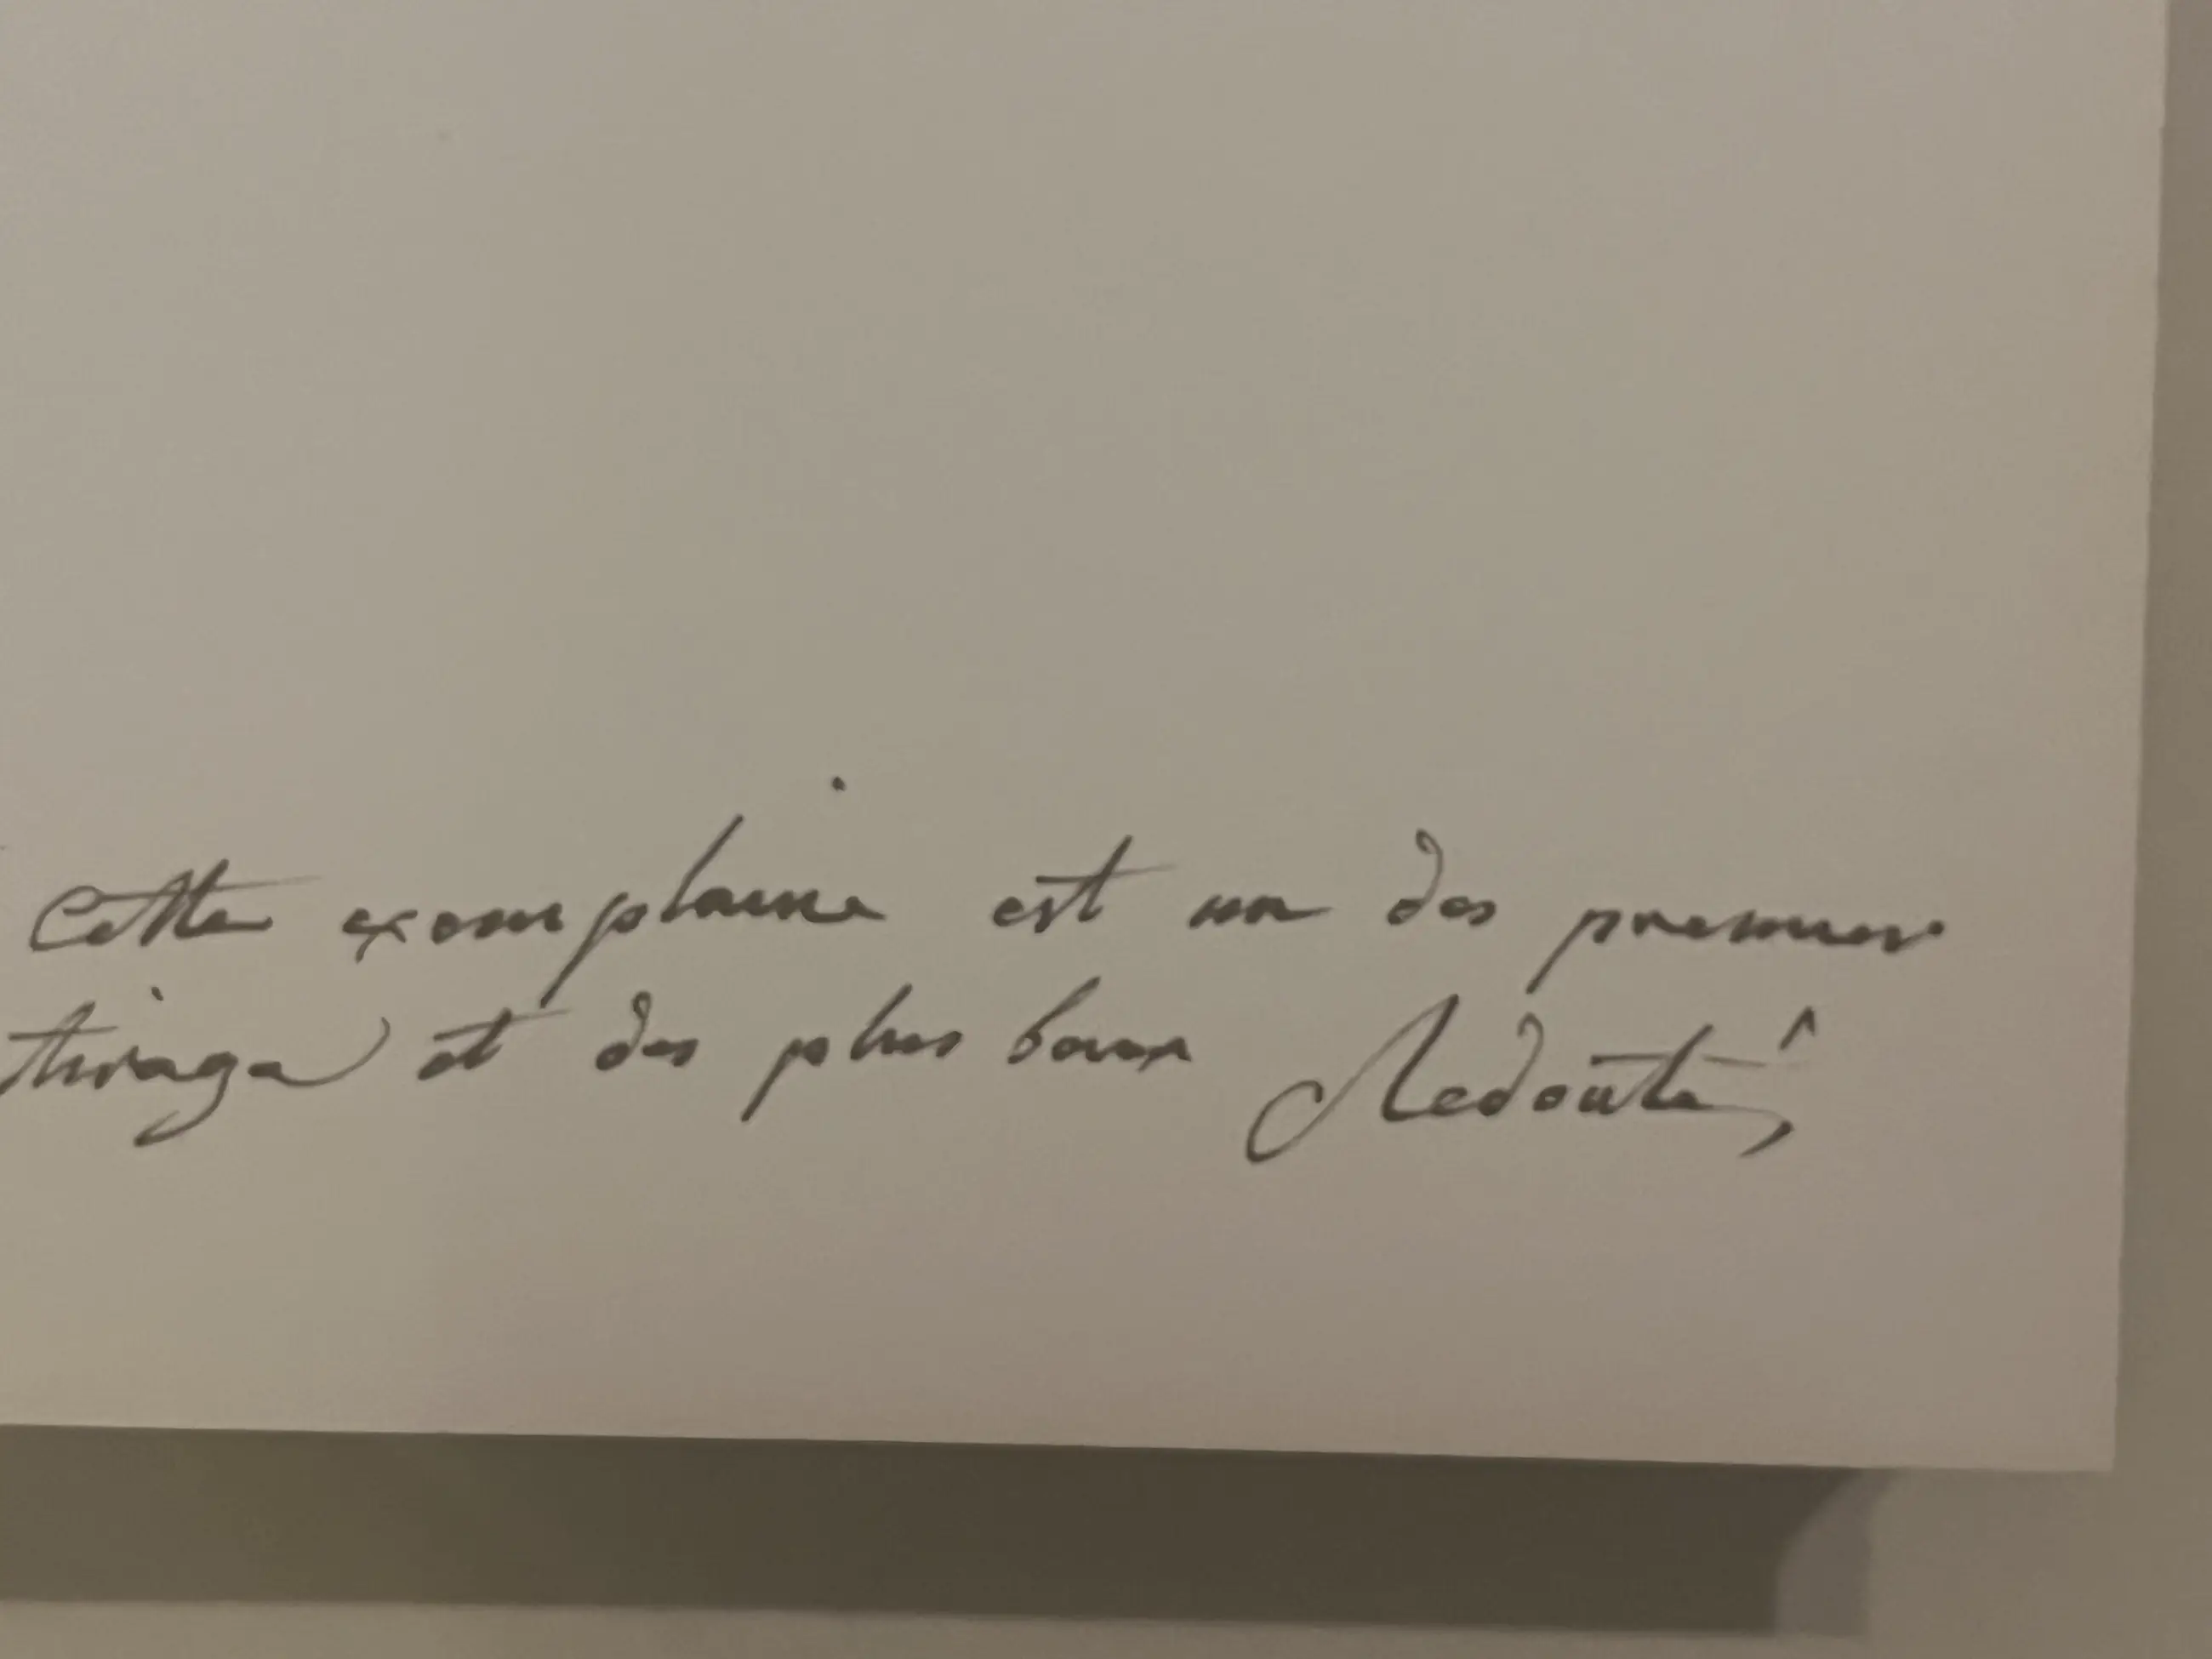 Cette exemplaire est un des premiers
tirage et des plus beaux Redouté